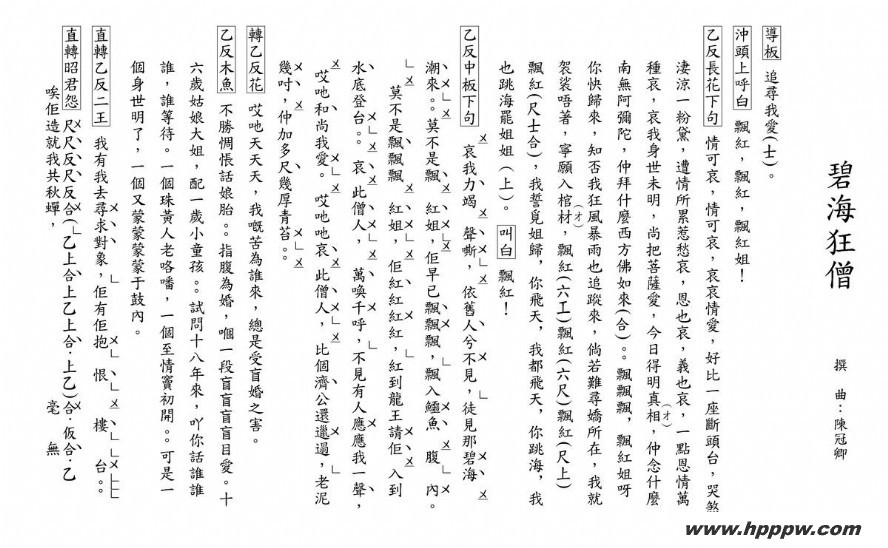 碧海狂僧
撰曲：陳冠卿
導板 追尋我愛(士)。
沖頭上呼白 飄紅，飄紅，飄紅姐！
乙反長花下句 情可哀，情可哀，哀哀情愛，好比一座斷頭台，哭煞
淒涼一粉黛，遭情所累惹愁哀，恩也哀，義也哀，一點恩情萬
種哀，哀我身世未明，尚把菩薩愛，今日得明真相(オ)，仲念什麼
南無阿彌陀，仲拜什麼西方佛如來(合)。。飄飄飄，飄紅姐呀
你快歸來，知否我狂風暴雨也追蹤來，倘若難尋嬌所在，我就
袈裟唔著，寧願入棺材(オ)，飄紅(六工)飄紅(六尺)飄紅(尺上)
飄紅(尺士合)，我誓覓姐歸，你飛天，我都飛天，你跳海，我
也跳海罷姐姐(上)。 叫白 飄紅！
乙反中板下句 哀我力竭 聲嘶，依舊人兮不見，徒見那碧海
潮來。。莫不是飄 紅姐，佢早已飄飄飄，飄入鱷魚 腹 內。
莫不是飄飄飄 紅姐，佢紅紅紅，紅到龍王請佢 入到
水底登台。。哀 此僧人， 萬喚千呼，不見有人應應我一聲，
哎吔和尚我愛。 哎吔吔哀 此僧人，比個濟公還邋遢，老泥
幾吋，仲加多尺幾厚青苔。。
轉乙反花 哎吔天天天，我嘅苦為誰來，總是受盲婚之害。
乙反木魚 不勝惆悵話娘胎。。指腹為婚，嗰一段盲盲盲盲目愛。十
六歲姑娘大姐，配一歲小童孩。。試問十八年來，吖你話誰誰
誰，誰等待。一個珠黃人老咯噃，一個至情竇初開。。可是一
個身世明了，一個又蒙蒙蒙蒙于鼓內。
直轉乙反二王 我有我去尋求對象，佢有佢抱 恨 樓 台。。
直轉昭君怨 尺尺反尺反合(乙上合上乙上合·上乙)合·仮合·乙
唉佢造就我共秋蟬， 毫 無
www.hpppw.com